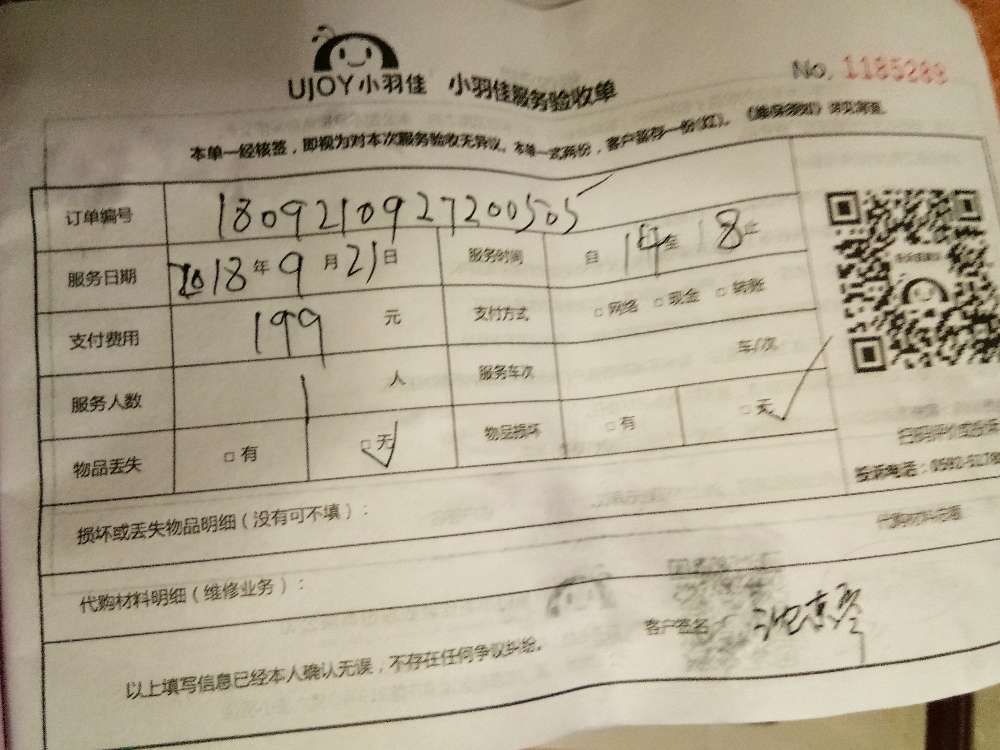 UJOY小羽佳 小羽佳服务验收单 No. 1185288
本单一经核签，即视为对本次服务验收无异议。本单一式两份，客户留存一份(红)。
订单编号 1809210927200505
服务日期 2018年9月21日 服务时间 自14至18止
支付费用 199元 支付方式 □网络 □现金 □转账
服务人数 1人 服务车次 车/次
物品丢失 □有 □无 物品损坏 □有 □无
损坏或丢失物品明细（没有可不填）：
代购材料明细（维修业务）：
以上填写信息已经本人确认无误，不存在任何争议纠纷。 客户签名